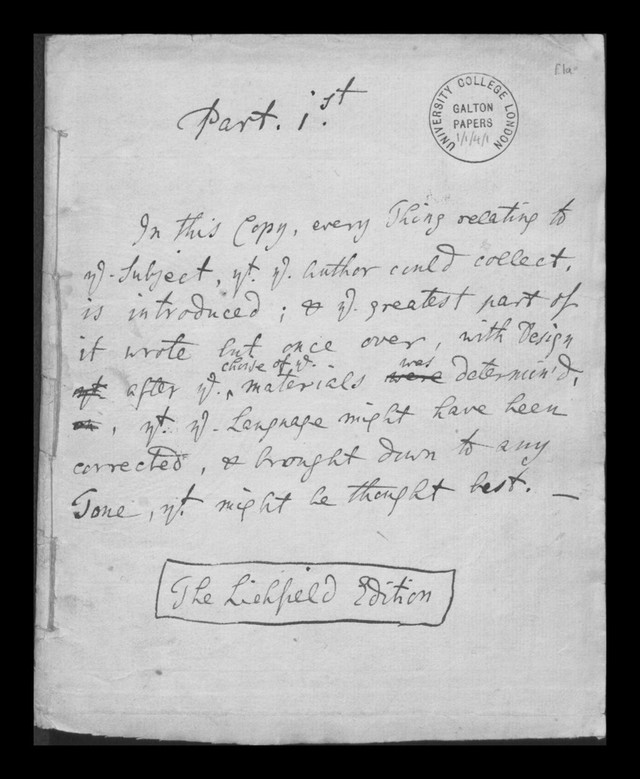 Part. 1.st
UNIVERSITY COLLEGE LONDON
GALTON
PAPERS
1/1/4/1
In this Copy, every Thing relating to
ye. Subject, yt. ye. Author could collect,
is introduced; & ye. greatest part of
it wrote but once over, with Design
choise of ye. was
yt. after ye. materials were determin'd,
, yt. ye. Language might have been
corrected, & brought down to any
Tone, yt. might be thought best. —
The Lichfield Edition